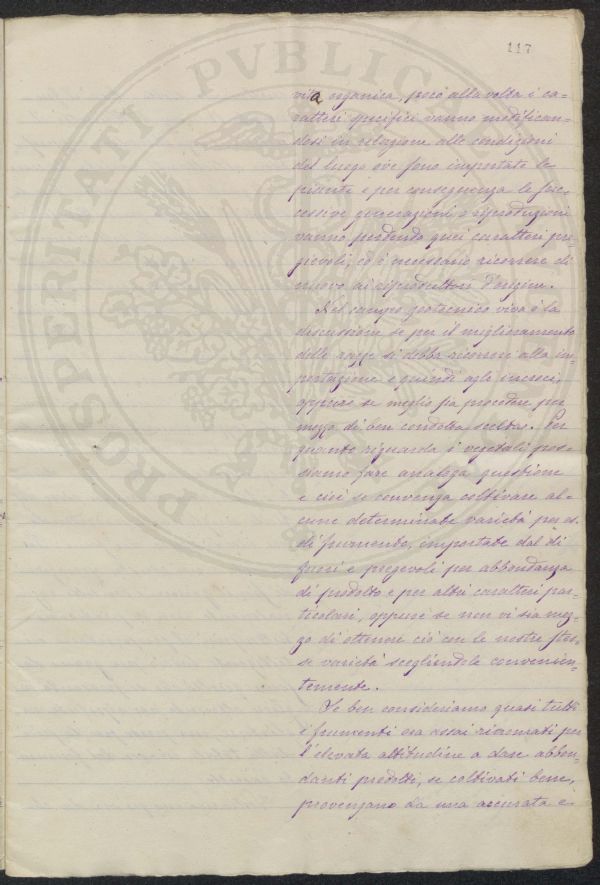 117
vita organica, però alla volta i ca-
ratteri specifici vanno modifican-
dosi in relazione alle condizioni
del luogo ove sono importate le
piante e per conseguenza le suc-
cessive generazioni o riproduzioni
vanno perdendo quei caratteri pre-
gievoli, ed è necessario ricorrere di
nuovo ai riproduttori d'origine.
Nel campo zootecnico viva è la
discussione se per il miglioramento
delle razze si debba ricorrere alla im-
portazione e quindi agli incroci,
oppure se meglio sia procedere per
mezzo di ben condotta scelta. Per
quanto riguarda i vegetali pos-
siamo fare analoga questione
e cioè se convenga coltivare al-
cune determinate varietà per es.
di frumento, importate dal di
fuori e pregevoli per abbondanza
di prodotto e per altri caratteri par-
ticolari, oppure se non vi sia mez-
zo di ottenere ciò con le nostre stes-
se varietà scegliendole convenien-
temente.
Se ben consideriamo quasi tutti
i frumenti ora assai rinomati per
l'elevata attitudine a dare abbon-
danti prodotti, se coltivati bene,
provengano da una accurata e
PROSPERITATI PVBLICAE